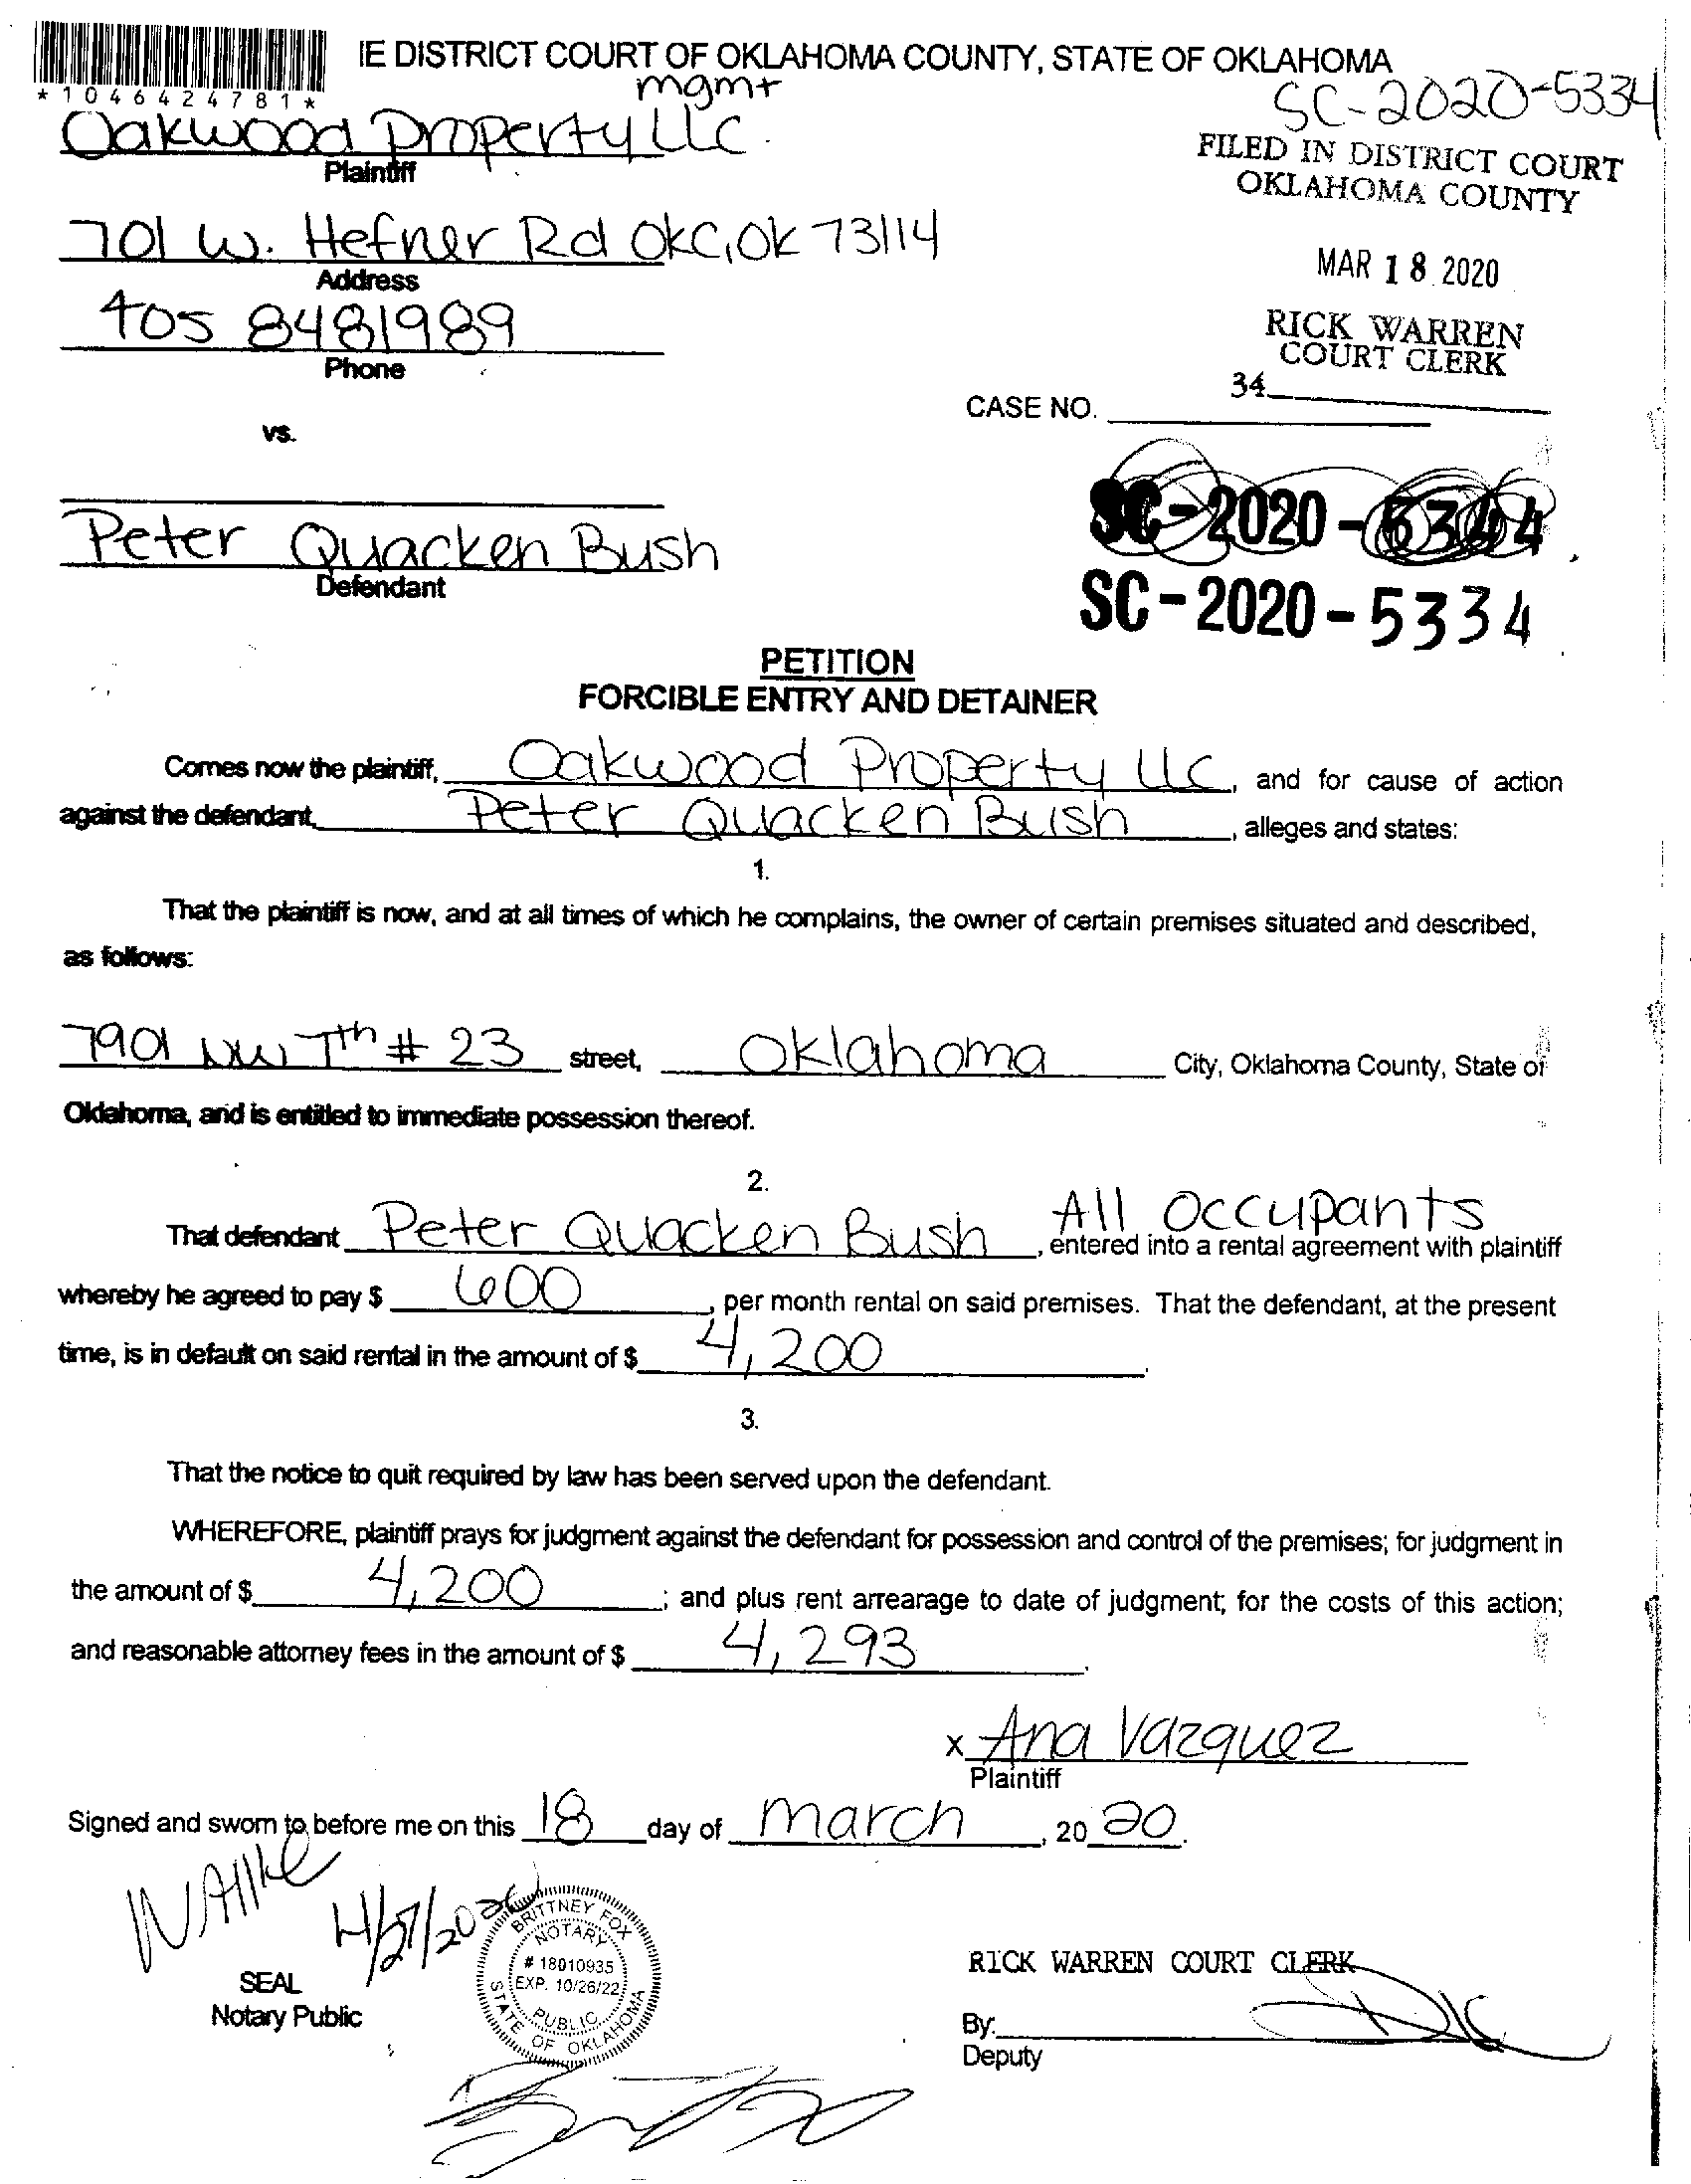 IE DISTRICT COURT OF OKLAHOMA COUNTY, STATE OF OKLAHOMA
*1046424781*
mgmt
SC-2020-5334
Oakwood Property LLC
Plaintiff
FILED IN DISTRICT COURT
OKLAHOMA COUNTY
701 W. Hefner Rd OKC, OK 73114
Address
MAR 18 2020
405 8481989
Phone
RICK WARREN
COURT CLERK
34
CASE NO.
vs.
SC-2020-5344
Peter Quacken Bush
Defendant
SC-2020-5334
PETITION
FORCIBLE ENTRY AND DETAINER
Comes now the plaintiff, Oakwood Property LLC, and for cause of action
against the defendant, Peter Quacken Bush, alleges and states:
1.
That the plaintiff is now, and at all times of which he complains, the owner of certain premises situated and described,
as follows:
7901 NW 7th # 23 street, Oklahoma City, Oklahoma County, State of
Oklahoma, and is entitled to immediate possession thereof.
2.
All Occupants
That defendant Peter Quacken Bush, entered into a rental agreement with plaintiff
whereby he agreed to pay $ 600, per month rental on said premises. That the defendant, at the present
time, is in default on said rental in the amount of $ 4,200.
3.
That the notice to quit required by law has been served upon the defendant.
WHEREFORE, plaintiff prays for judgment against the defendant for possession and control of the premises; for judgment in
the amount of $ 4,200; and plus rent arrearage to date of judgment; for the costs of this action;
and reasonable attorney fees in the amount of $ 4,293.
x Ana Vazquez
Plaintiff
Signed and sworn to before me on this 18 day of march, 20 20.
4/27/2020
BRITTNEY FOX
NOTARY
# 18010935
EXP. 10/26/22
PUBLIC
STATE OF OKLAHOMA
SEAL
Notary Public
RICK WARREN COURT CLERK
By:
Deputy